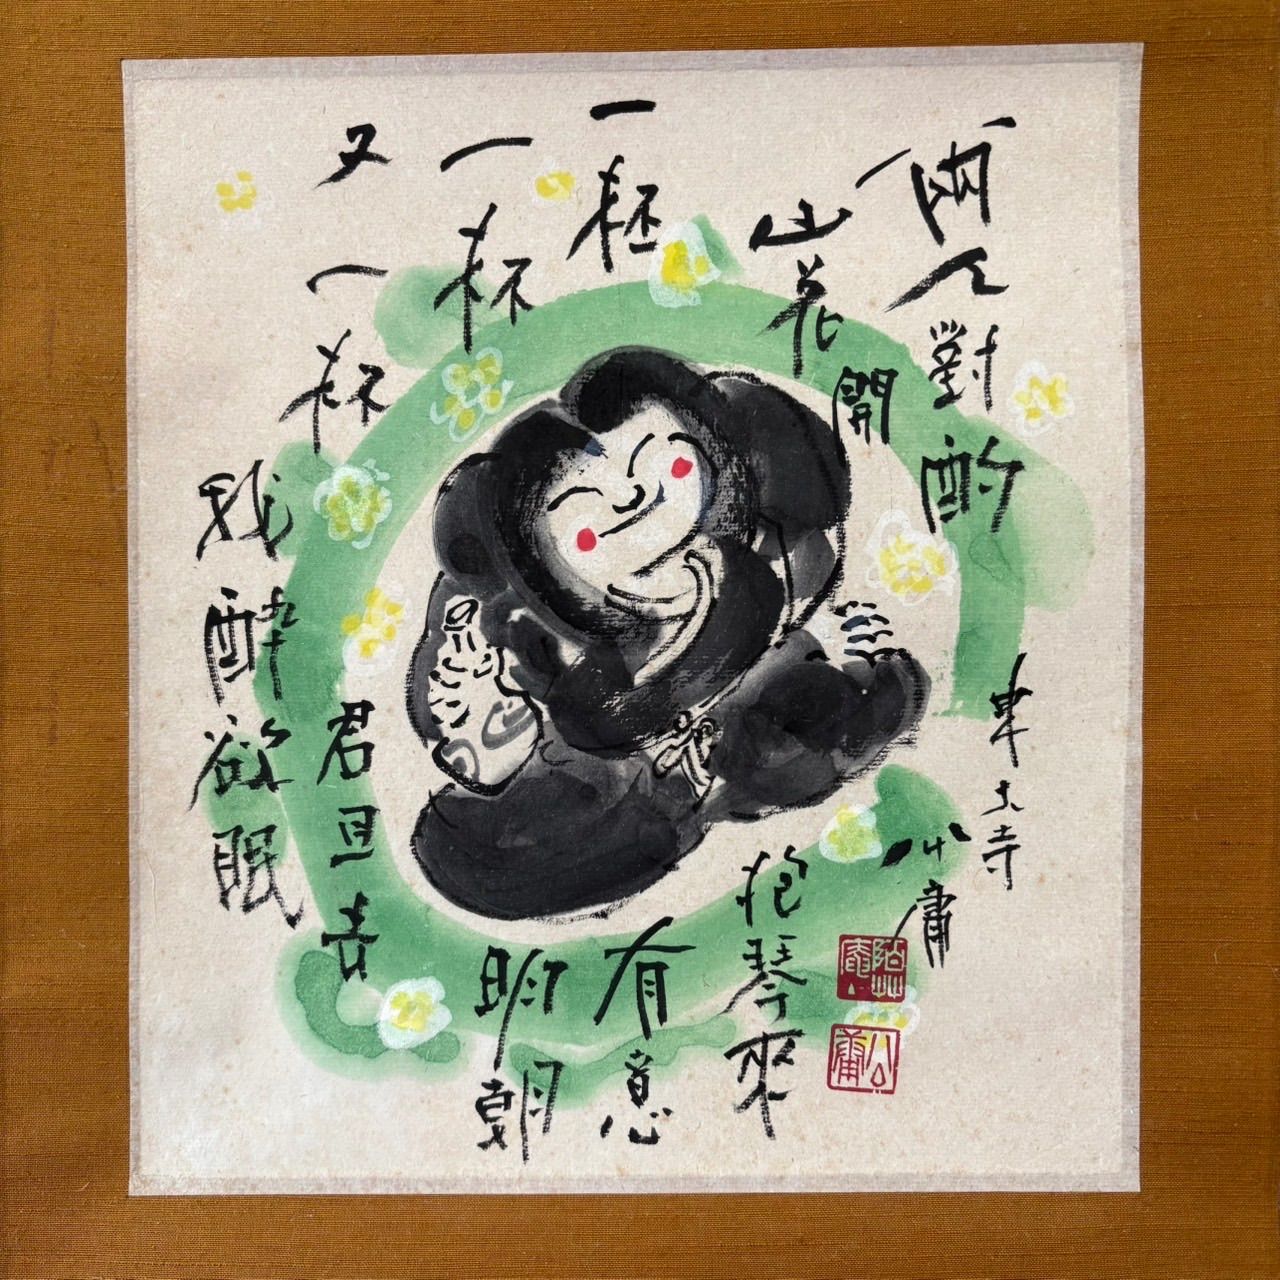 兩人對酌
山花開
一杯
一杯
又一杯
我醉欲眠
君且去
明朝
有意
抱琴來
東大寺
公庸
公庸